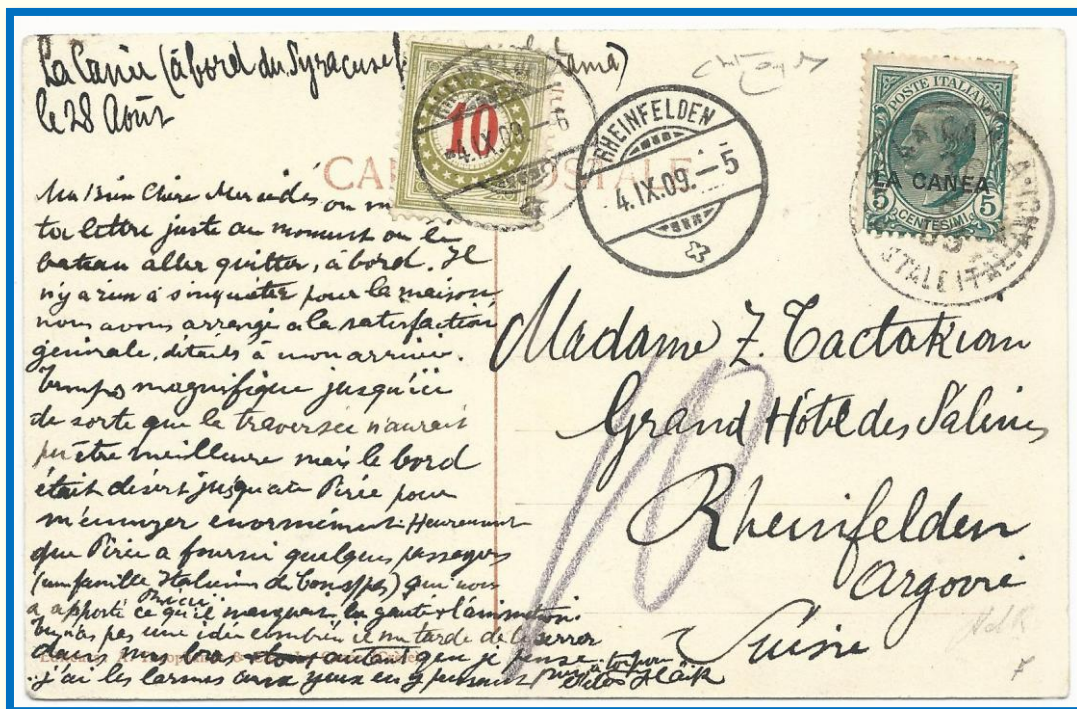 La Canée (à bord du Syracuse
le 28 Août
CARTE POSTALE
10
RHEINFELDEN
4.IX.09.-6
RHEINFELDEN
4.IX.09.-5
POSTE ITALIANE
LA CANEA
5 CENTESIMI 5
Ma bien Chère Mercédès on m
ta lettre juste au moment où le
bateau aller quitter, à bord. Il
n'y a rien à s'inquiéter pour la maison,
nous avons arrangé a la satisfaction
générale, détails à mon arrivée.
Temps magnifique jusqu'ici
de sorte que la traversée n'aurait
pu être meilleure mais le bord
était désert jusqu'au Pirée pour
m'ennuyer enormément. Heureusement
que Pirée a fourni quelques passagers
(une famille Italienne de Consple) qui nous
a apporté ce qu'il manquait, la gaité & l'animation.
Tu n'as pas une idée combien il me tarde de te serrer
dans mes bras autant que je pense
j'ai les larmes aux yeux en y pensant
Madame Z. Tactakian
Grand Hôtel des Salines
Rheinfelden
Argovie
Suisse
10